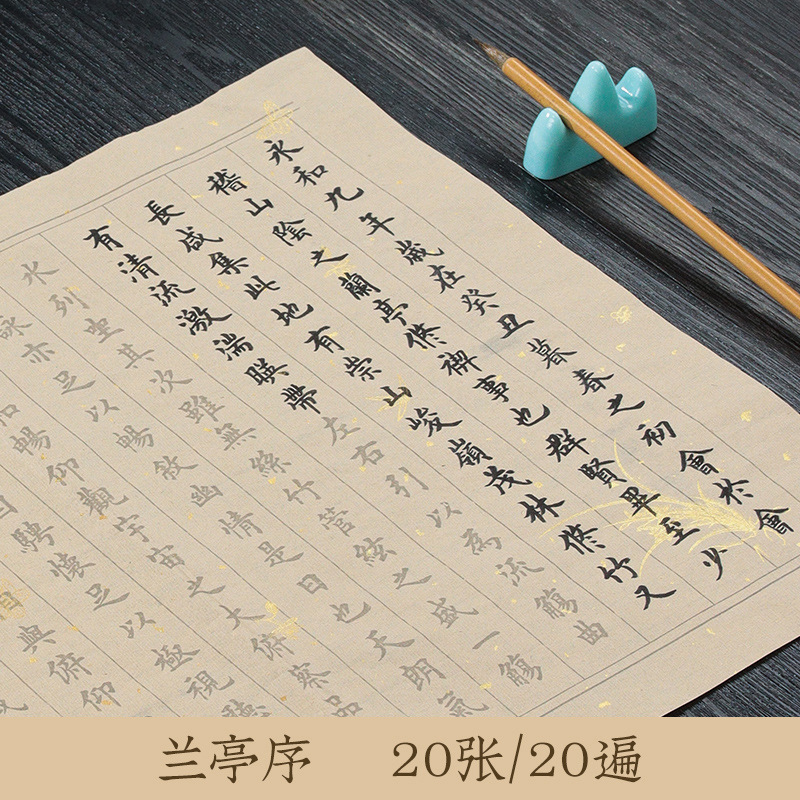 永和九年歲在癸丑暮春之初會於會
稽山陰之蘭亭修禊事也群賢畢至少
長咸集此地有崇山峻嶺茂林修竹又
有清流激湍暎帶左右引以為流觴曲
水列坐其次雖無絲竹管絃之盛一觴
詠亦足以暢敘幽情是日也天朗氣
暢仰觀宇宙之大俯察品
目騁懷足以極視聽
相與俯仰
兰亭序 20张/20遍